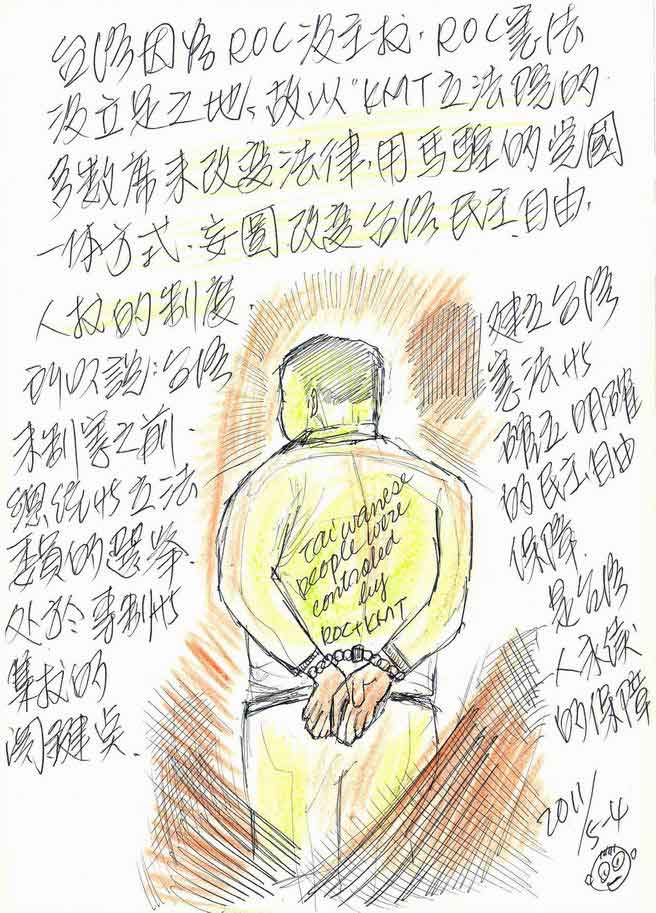 台湾因為ROC没主权，ROC憲法
没立足之地，故以“KMT立法院的
多数席来改变法律，用馬
的党國
一体方式．妄圖改变台湾民主．自由．
人权的制度．
所以説：台湾
未制憲之前
總統與立法
委員的選举．
处於專制與
集权的
関鍵点．
建立台湾
憲法與
確立明確
的民主自由
保障．
是台湾
人永續
的保障
Taiwanese
people were
controled
by
ROC+KMT
2011/5-4